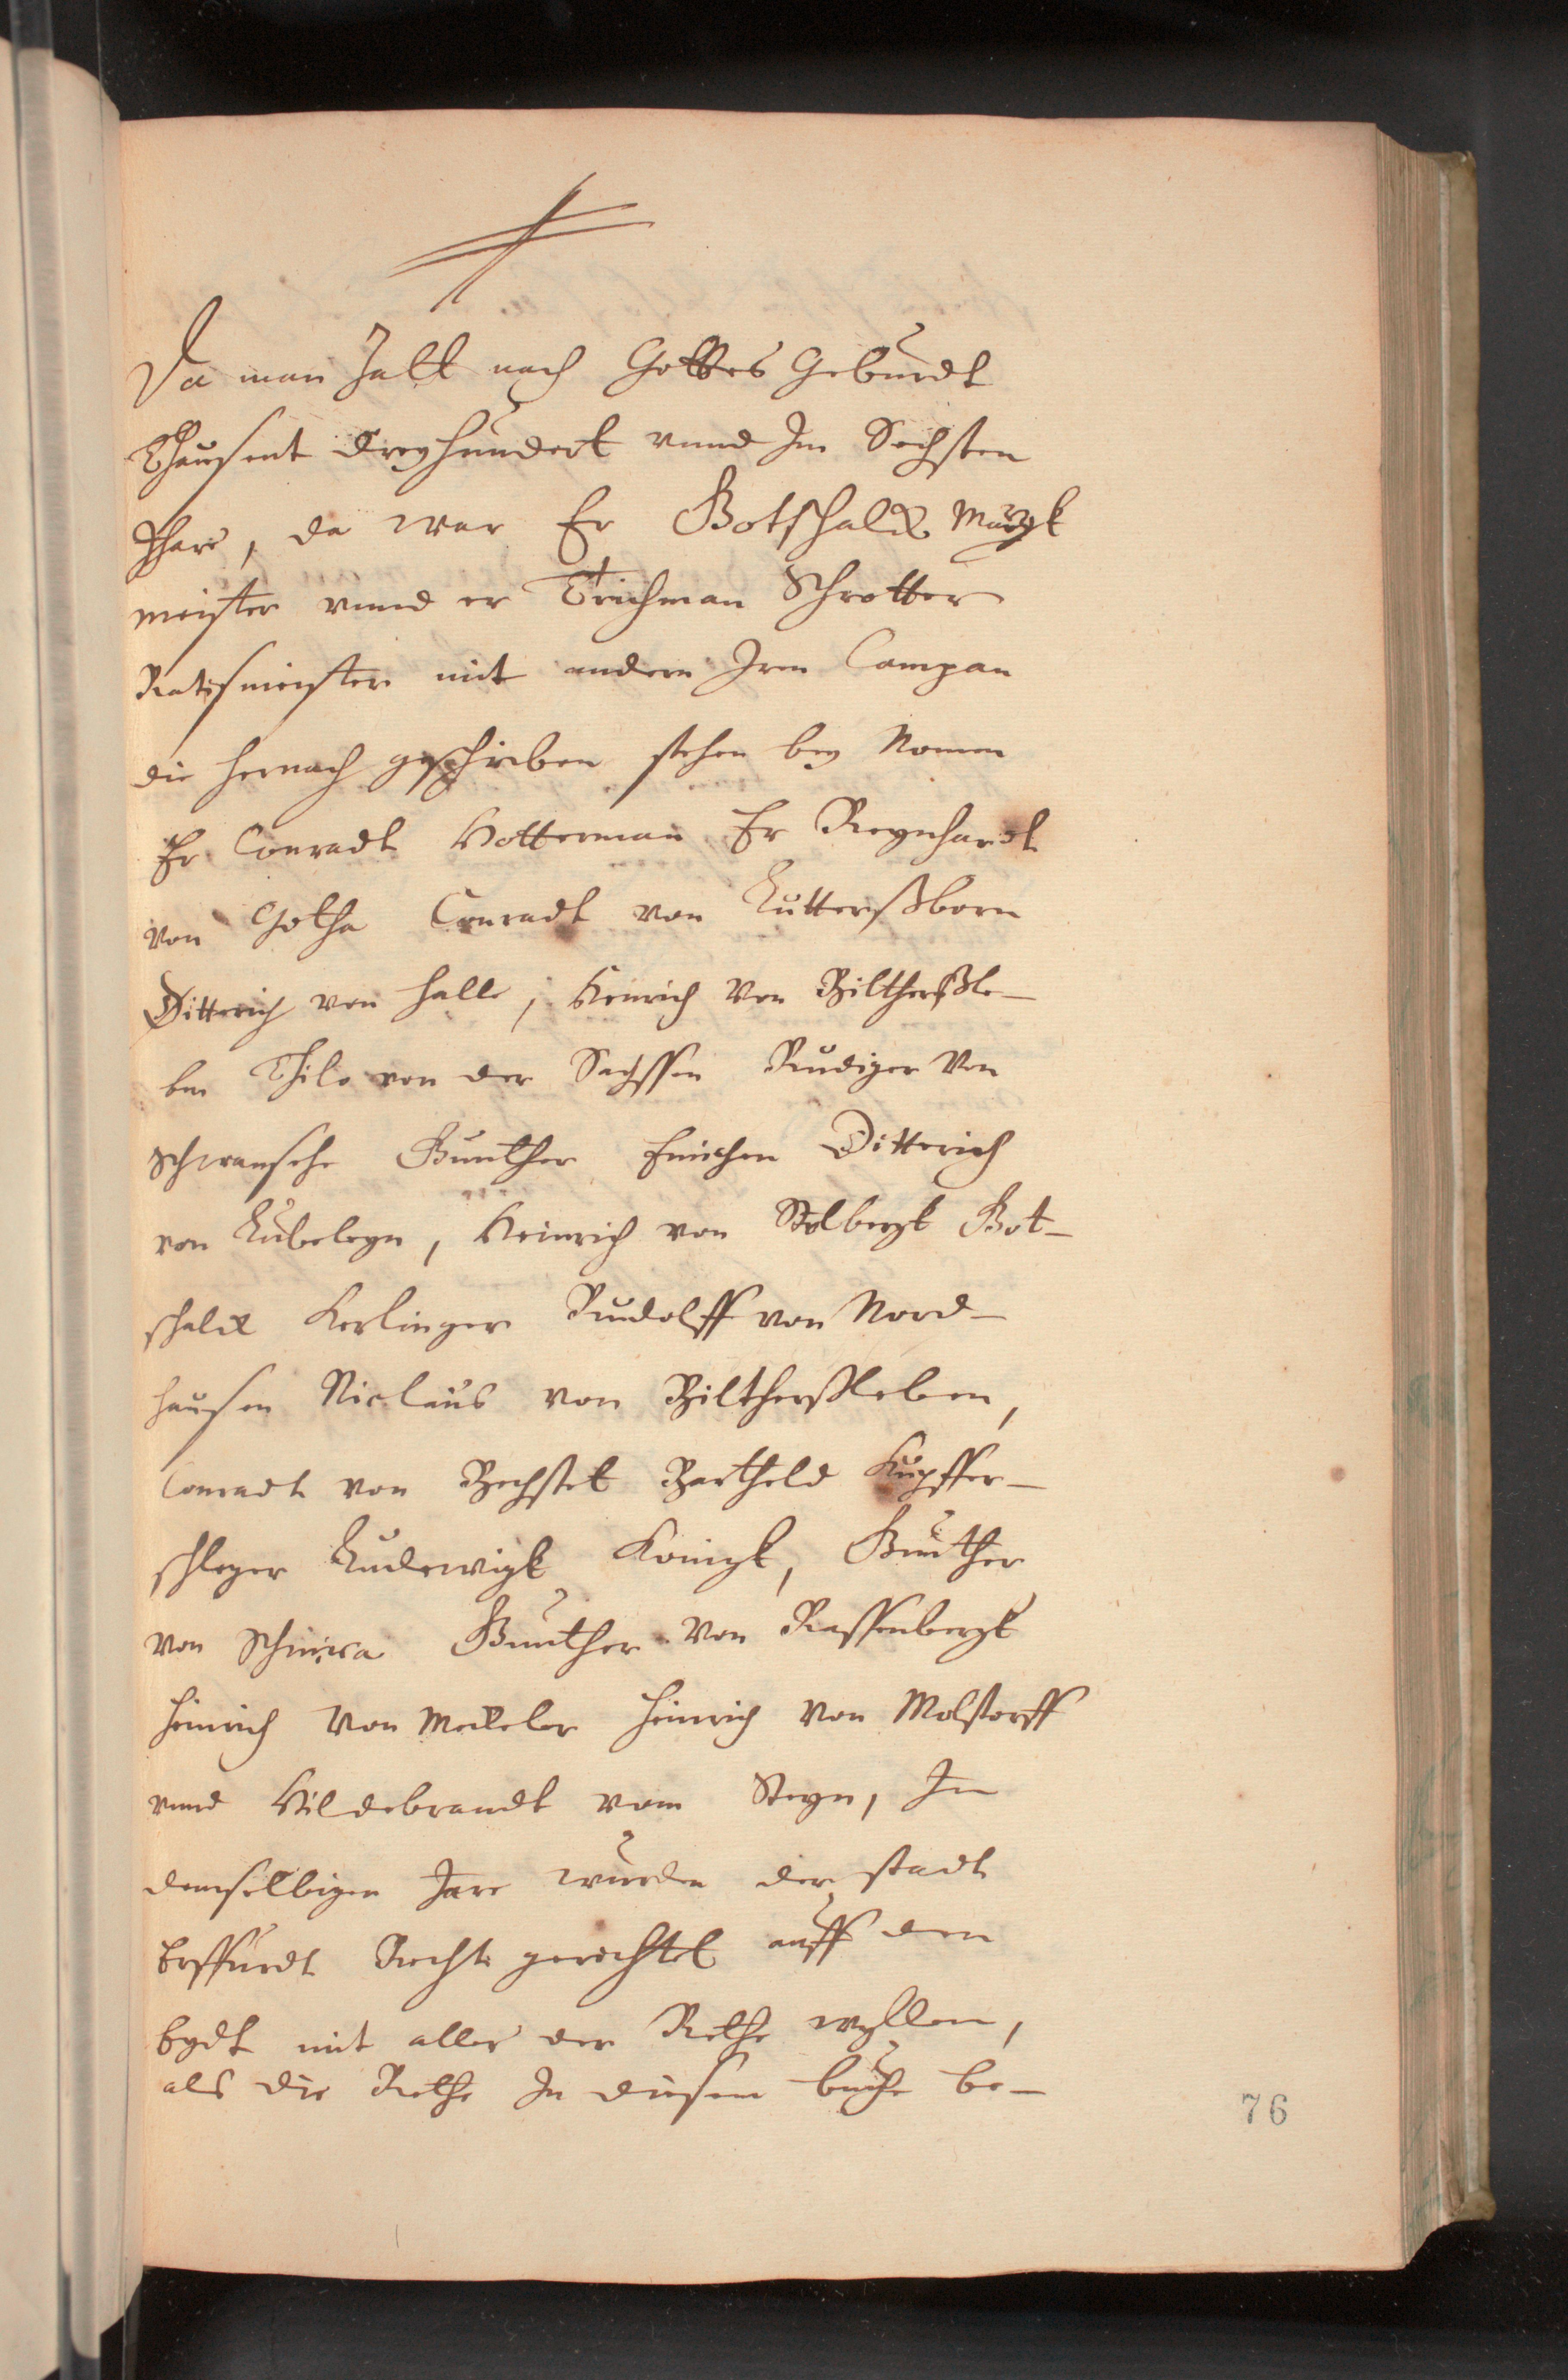 Da man Zalt nach Gottes Geburdt
Thausent dreyhundert vnnd Im Sechsten
Jhare, da war Er Gotschalck Margk
meister vnnd er Teichman Schrotter
Ratsmeister mit andern Jren Campan
die hernach geschrieben stehen bey Namen
Er Conradt Hotterman Er Reynhardt
von Gotha Conradt von Lutterßborn
Ditterich von Halle, Heinrich Von Biltherßle-
ben Thilo von der Sachssen Rudiger Von
Schwansehe Gunther Emichen Ditterich
von Lubeleyn, Heinrich von Stolbergk Got-
schalck Kerlinger Rudolff von Nord-
hausen Niclaus von Biltherßleben,
Conradt von Bechstet Bartheld Kupffer-
schleger Ludewigk Konigk, Gunther
von Schmira Gunther Von Rassenbergk
Heinrich Von Meckeler Heinrich Von Molstorff
vnnd Hildebrandt vom Steyn, In
demselbigen Jare wurden der stadt
Erffurdt Recht gerichtet auff den
Eydt mit aller der Rethe wyllen,
als die Rethe In diesem buche be-
76